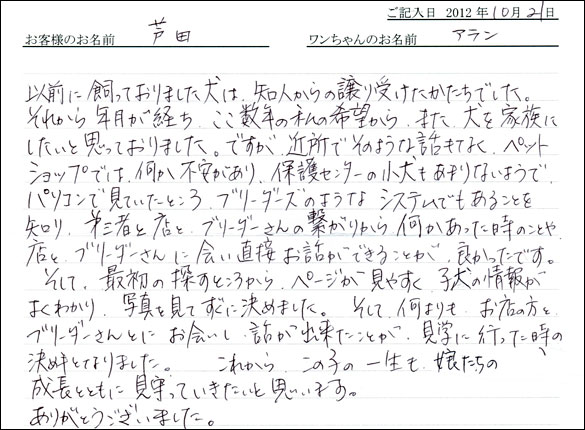 ご記入日 2012年10月21日
お客様のお名前 芦田 ワンちゃんのお名前 アラン
以前に飼っておりました犬は、知人からの譲り受けたかたちでした。
それから年月が経ち、ここ数年の私の希望から、また、犬を家族に
したいと思っておりました。ですが、近所でそのような話もなく、ペット
ショップでは、何か不安があり、保護センターの小犬もあまりないようで、
パソコンで見ていたところ、ブリーダーズのようなシステムでもあることを
知り、第三者と店と、ブリーダーさんの繋がりから何かあった時のことや、
店と、ブリーダーさんに会い直接お話ができることが、良かったです。
そして、最初の探すところから、ページが見やすく、子犬の情報が
よくわかり、写真を見てすぐに決めました。そして、何よりも、お店の方と、
ブリーダーさんとにお会いし、話が出来たことが、見学に行った時の
決め手となりました。 これから、この子の一生も、娘たちの
成長とともに見守っていきたいと思います。
ありがとうございました。